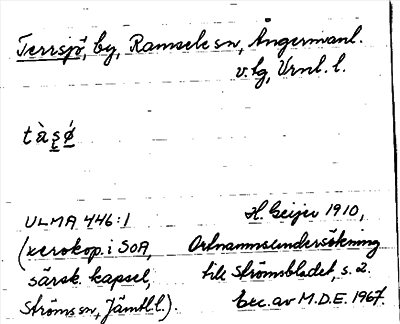 Terrsjö, by, Ramsele sn, Ångermanl.
v. lg, Vrnl. l.
tàs̱ǿ
ULMA 446:1
H. Geijer 1910,
(xerokop. i SOA,
Ortnamnsundersökning
särsk. kapsel,
till Strömsbladet, s. 2.
Ströms sn, Jämtl. l.).
Exc. av M.D.E. 1967.